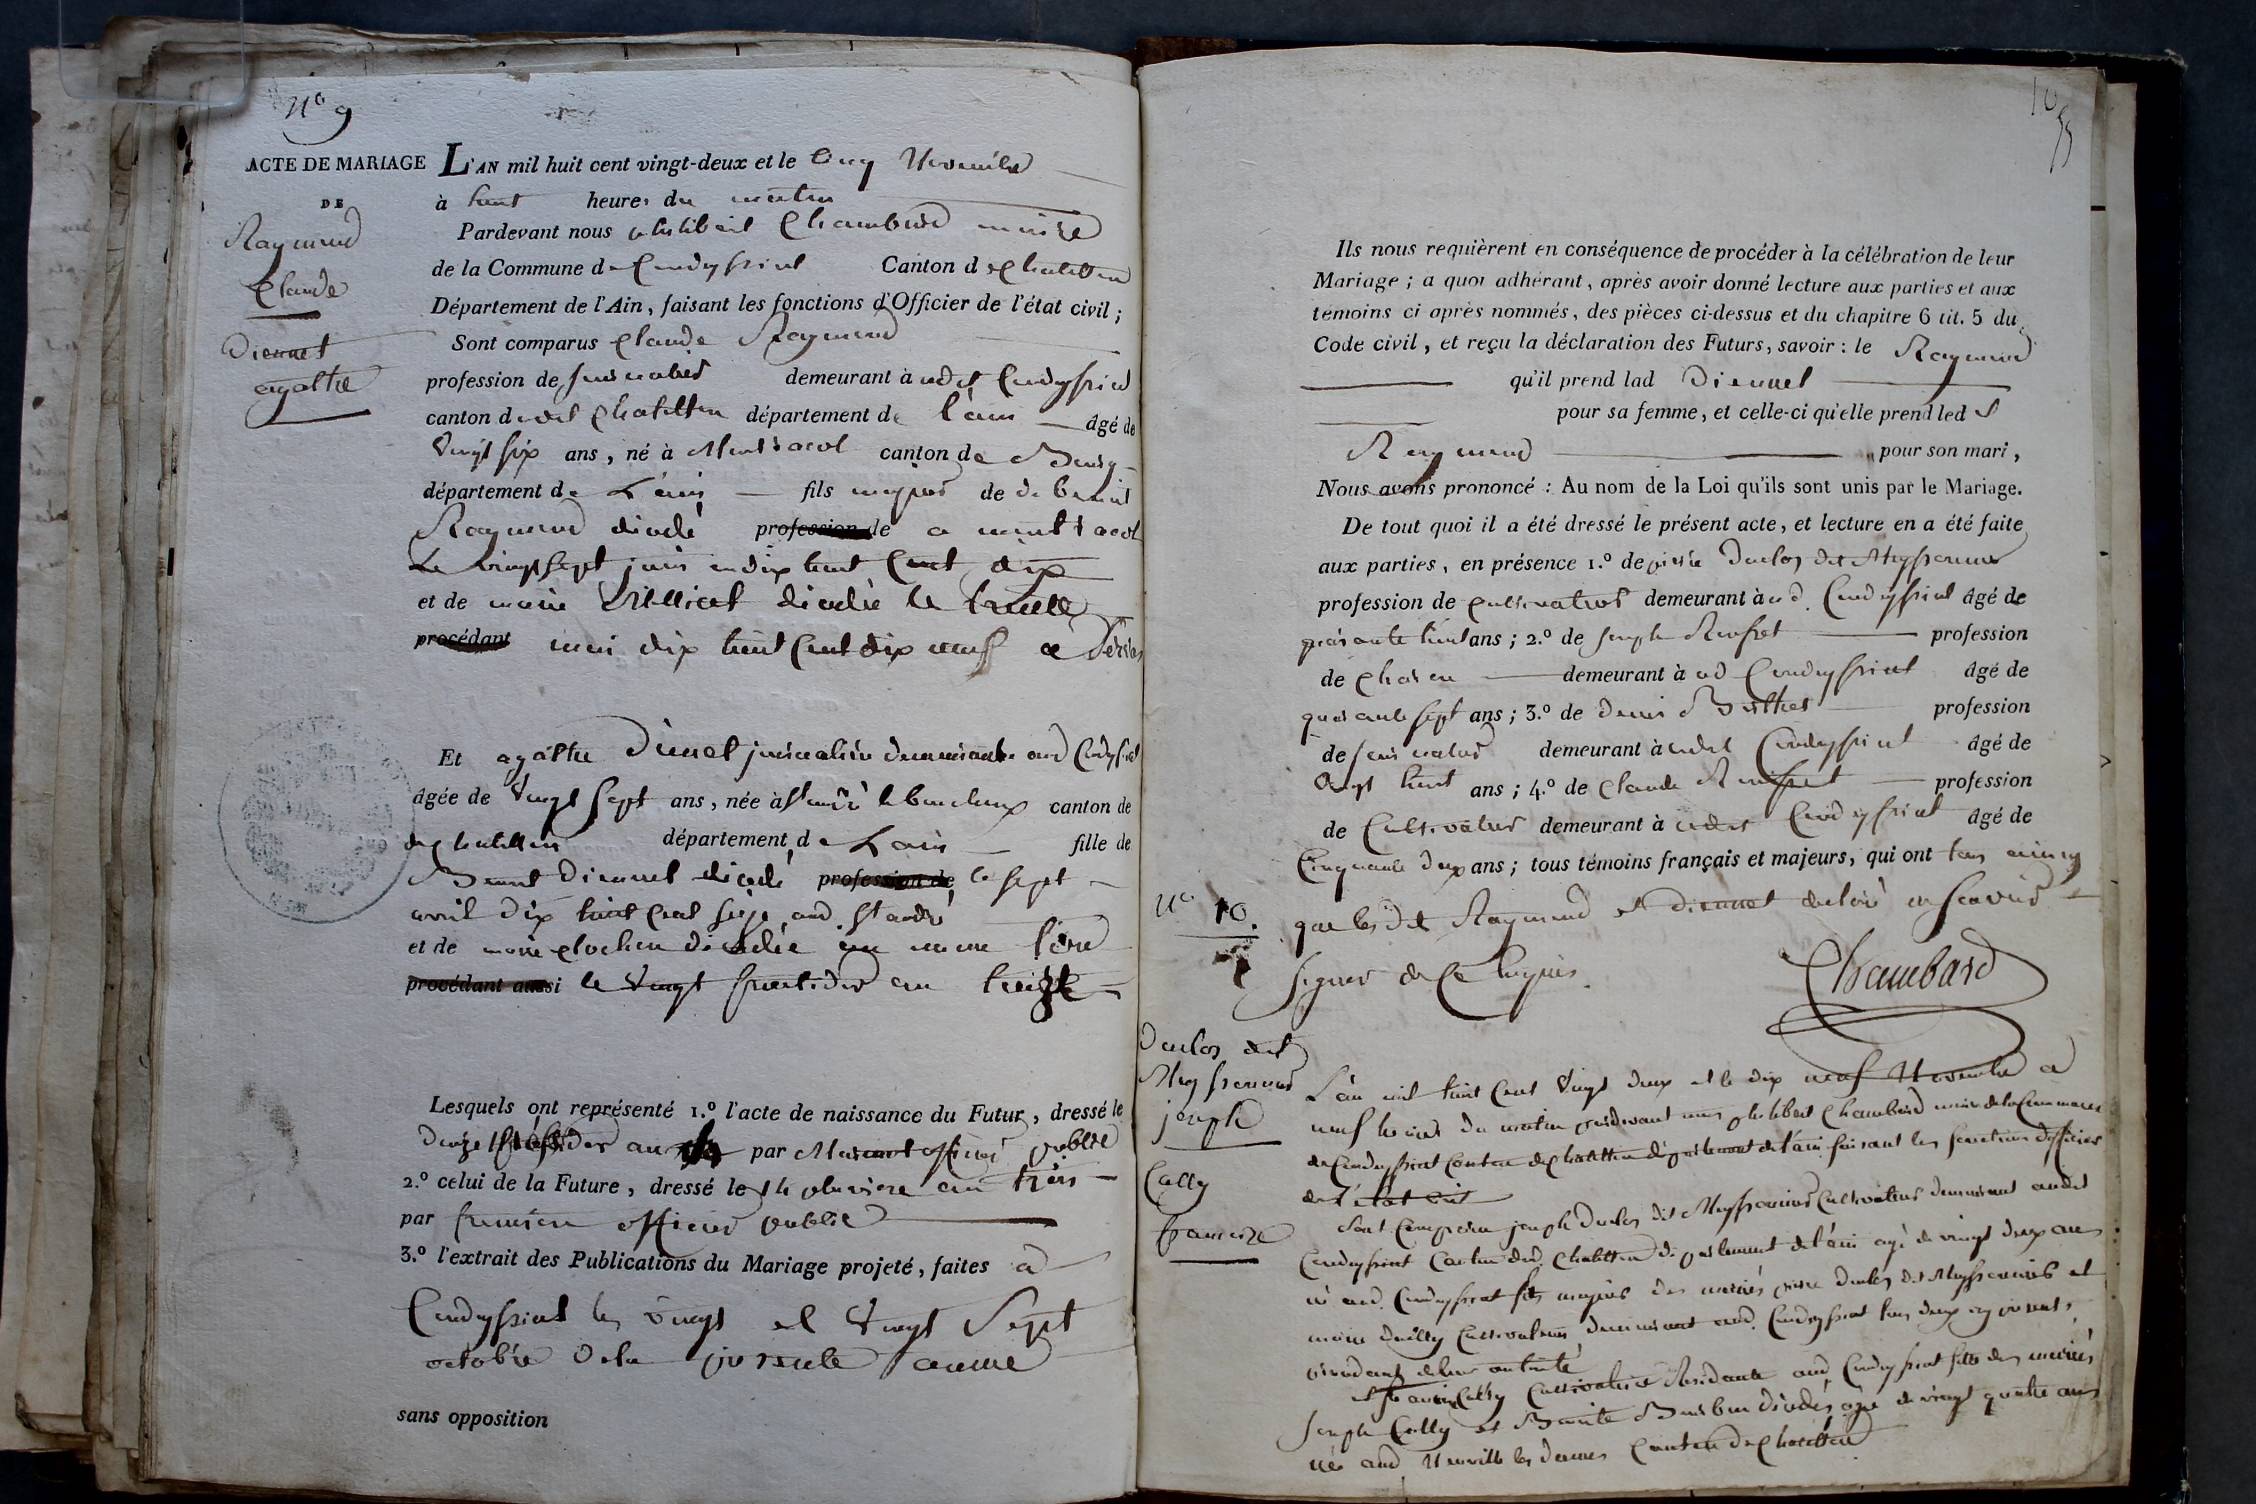 N.o 9
ACTE DE MARIAGE
DE
Raymond
Claude
Diennet
agathe
L'AN mil huit cent vingt-deux et le Novembre
à huit heures du matin
Pardevant nous philibert Chambard maire
de la Commune de Condeyssiat Canton de Chatillon
Département de l'Ain, faisant les fonctions d'Officier de l'état civil ;
Sont comparus Claude Raymond
profession de journalier demeurant à udit Condeyssiat
canton dudit Chatillon département de l'ain âgé de
vingt six ans, né à Montracol canton de Bourg
département de L'ain fils majeur de de benoit
Raymond décédé profession de a montracol
Le vingt sept juin mil huit Cent dix
et de marie décédée le trente
procédant mai dix huit Cent dix neuf a Servas
Et agathe Diennet journalière demeurante aud Condeyssiat
âgée de vingt sept ans, née à St andré le bouchoux canton de
de chatillon département de L'ain fille de
Benoit Diennet décédé profession de le sept
avril dix huit Cent seize aud St andré
et de marie clochon décédée au meme lieu
procédant aussi le vingt fructidor an treize
Lesquels ont représenté 1.o l'acte de naissance du Futur, dressé le
an par officier public
2.o celui de la Future, dressé le 14 pluviose an trois
par officier public
3.o l'extrait des Publications du Mariage projeté, faites a
Condeyssiat les vingt et vingt Sept
octobre de la presente année
sans opposition
10
Ils nous requièrent en conséquence de procéder à la célébration de leur
Mariage ; a quoi adhérant, après avoir donné lecture aux parties et aux
témoins ci après nommés, des pièces ci-dessus et du chapitre 6 tit. 5 du
Code civil, et reçu la déclaration des Futurs, savoir : le Raymond
qu'il prend lad Diennet
pour sa femme, et celle-ci qu'elle prend led
Raymond pour son mari,
Nous avons prononcé : Au nom de la Loi qu'ils sont unis par le Mariage.
De tout quoi il a été dressé le présent acte, et lecture en a été faite
aux parties, en présence 1.o de pierre Duclos dit Meyssonnier
profession de cultivateur demeurant à ud. Condeyssiat âgé de
quarante huit ans ; 2.o de joseph profession
de charon demeurant à ud Condeyssiat âgé de
quarante sept ans ; 3.o de denis profession
de journalier demeurant à udit Condeyssiat âgé de
vingt huit ans ; 4.o de Claude profession
de Cultivateur demeurant à udit Condeyssiat âgé de
Cinquante deux ans ; tous témoins français et majeurs, qui ont
que lesdit Raymond et Diennet declaré ne scavoir
signer de Ce requis.
Chambard
N.o 10.
Duclos dit
Meyssonnier
joseph
Cally
francoise
L'an mil huit Cent vingt deux et le dix neuf Novembre a
neuf heures du matin pardevant nous philibert Chambard maire de la Commune
de Condeyssiat Canton de Chatillon département de l'ain faisant les fonctions d'officier
de l'état civil
Sont Comparu joseph Duclos dit Meyssonnier Cultivateur demeurant audit
Condeyssiat Canton dud. Chatillon département de l'ain agé de vingt deux ans
né aud. Condeyssiat fils majeur des mariés pierre Duclos dit Meyssonnier et
marie Cultivateurs demeurant aud. Condeyssiat tous deux cy présents
procédant de leur autorité
et Cally Cultivatrice Residante aud Condeyssiat fille des mariés
joseph Cally et Benoite décédés agée de vingt quatre ans
née aud Neuville les dames Canton de Chatillon